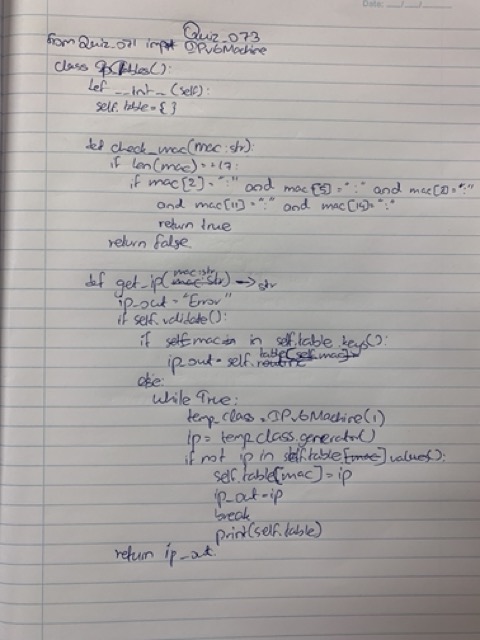 Date:
Quiz_073
from Quiz_071 import IPv6Machine
class IpTables():
def __init__(self):
self.table={}
def check_mac(mac:str):
if len(mac)==17:
if mac[2]=":" and mac[5]=":" and mac[8]=":"
and mac[11]=":" and mac[14]=":"
return true
return false
def get_ip(mac:str) -> str
ip_out="Error"
if self.validate():
if self.mac in self.table.keys():
ip_out=self.table[self.mac]
else:
while True:
temp_class=IPv6Machine(1)
ip=temp_class.generator()
if not ip in self.table.values():
self.table[mac]=ip
ip_out=ip
break
print(self.table)
return ip_out.